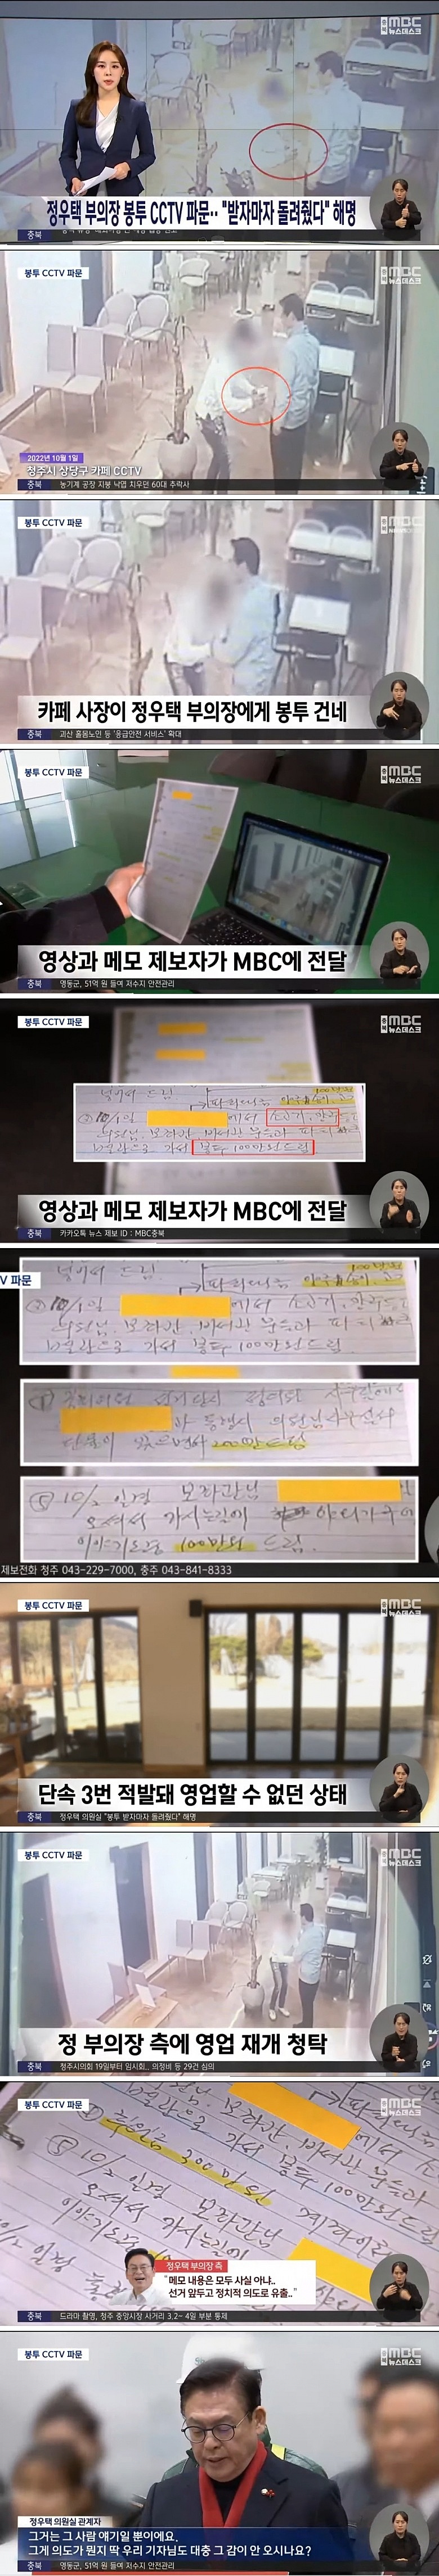 충북 MBC
뉴스데스크
정우택 부의장 봉투 CCTV 파문.. "받자마자 돌려줬다" 해명
충북
봉투 CCTV 파문
충북 MBC
뉴스데스크
2022년 10월 1일
청주시 상당구 카페 CCTV
충북 농기계 공장 지붕 낙엽 치우던 60대 추락사
봉투 CCTV 파문
충북 MBC
카페 사장이 정우택 부의장에게 봉투 건네
충북 괴산 홀몸노인 등 '응급안전 서비스' 확대
봉투 CCTV 파문
충북 MBC
뉴스데스크
영상과 메모 제보자가 MBC에 전달
충북 영동군, 51억 원 들여 저수지 안전관리
봉투 CCTV 파문
충북 MBC
뉴스데스크
100만원
10/1일 에서
봉투 100만원드림
영상과 메모 제보자가 MBC에 전달
충북 카카오톡 뉴스 제보 ID : MBC충북
V 파문
100만원
10/1일 에서
봉투 100만원드림
200만드림
⑧ 10/2 일경 보좌관님
오셔서 가시는길에
100만원 드림.
제보전화 청주 043-229-7000, 충주 043-841-8333
봉투 CCTV 파문
충북 MBC
뉴스데스크
단속 3번 적발돼 영업할 수 없던 상태
충북 정우택 의원실 "봉투 받자마자 돌려줬다" 해명
봉투 CCTV 파문
충북 MBC
뉴스데스크
정 부의장 측에 영업 재개 청탁
충북 청주시의회 19일부터 임시회.. 의정비 등 29건 심의
봉투 CCTV 파문
충북 MBC
뉴스데스크
봉투 100만원드림
300만원
⑧ 10/2 일경 보좌관님
오셔서 가시는길에
정우택 부의장 측
"메모 내용은 모두 사실 아냐..
선거 앞두고 정치적 의도로 유출.."
충북 드라마 촬영, 청주 중앙시장 사거리 3.2~4일 부분 통제
봉투 CCTV 파문
충북 MBC
뉴스데스크
정우택 의원실 관계자
그거는 그 사람 얘기일 뿐이에요.
그게 의도가 뭔지 딱 우리 기자님도 대충 그 감이 안 오시나요?
충북 영동군, 51억 원 들여 저수지 안전관리